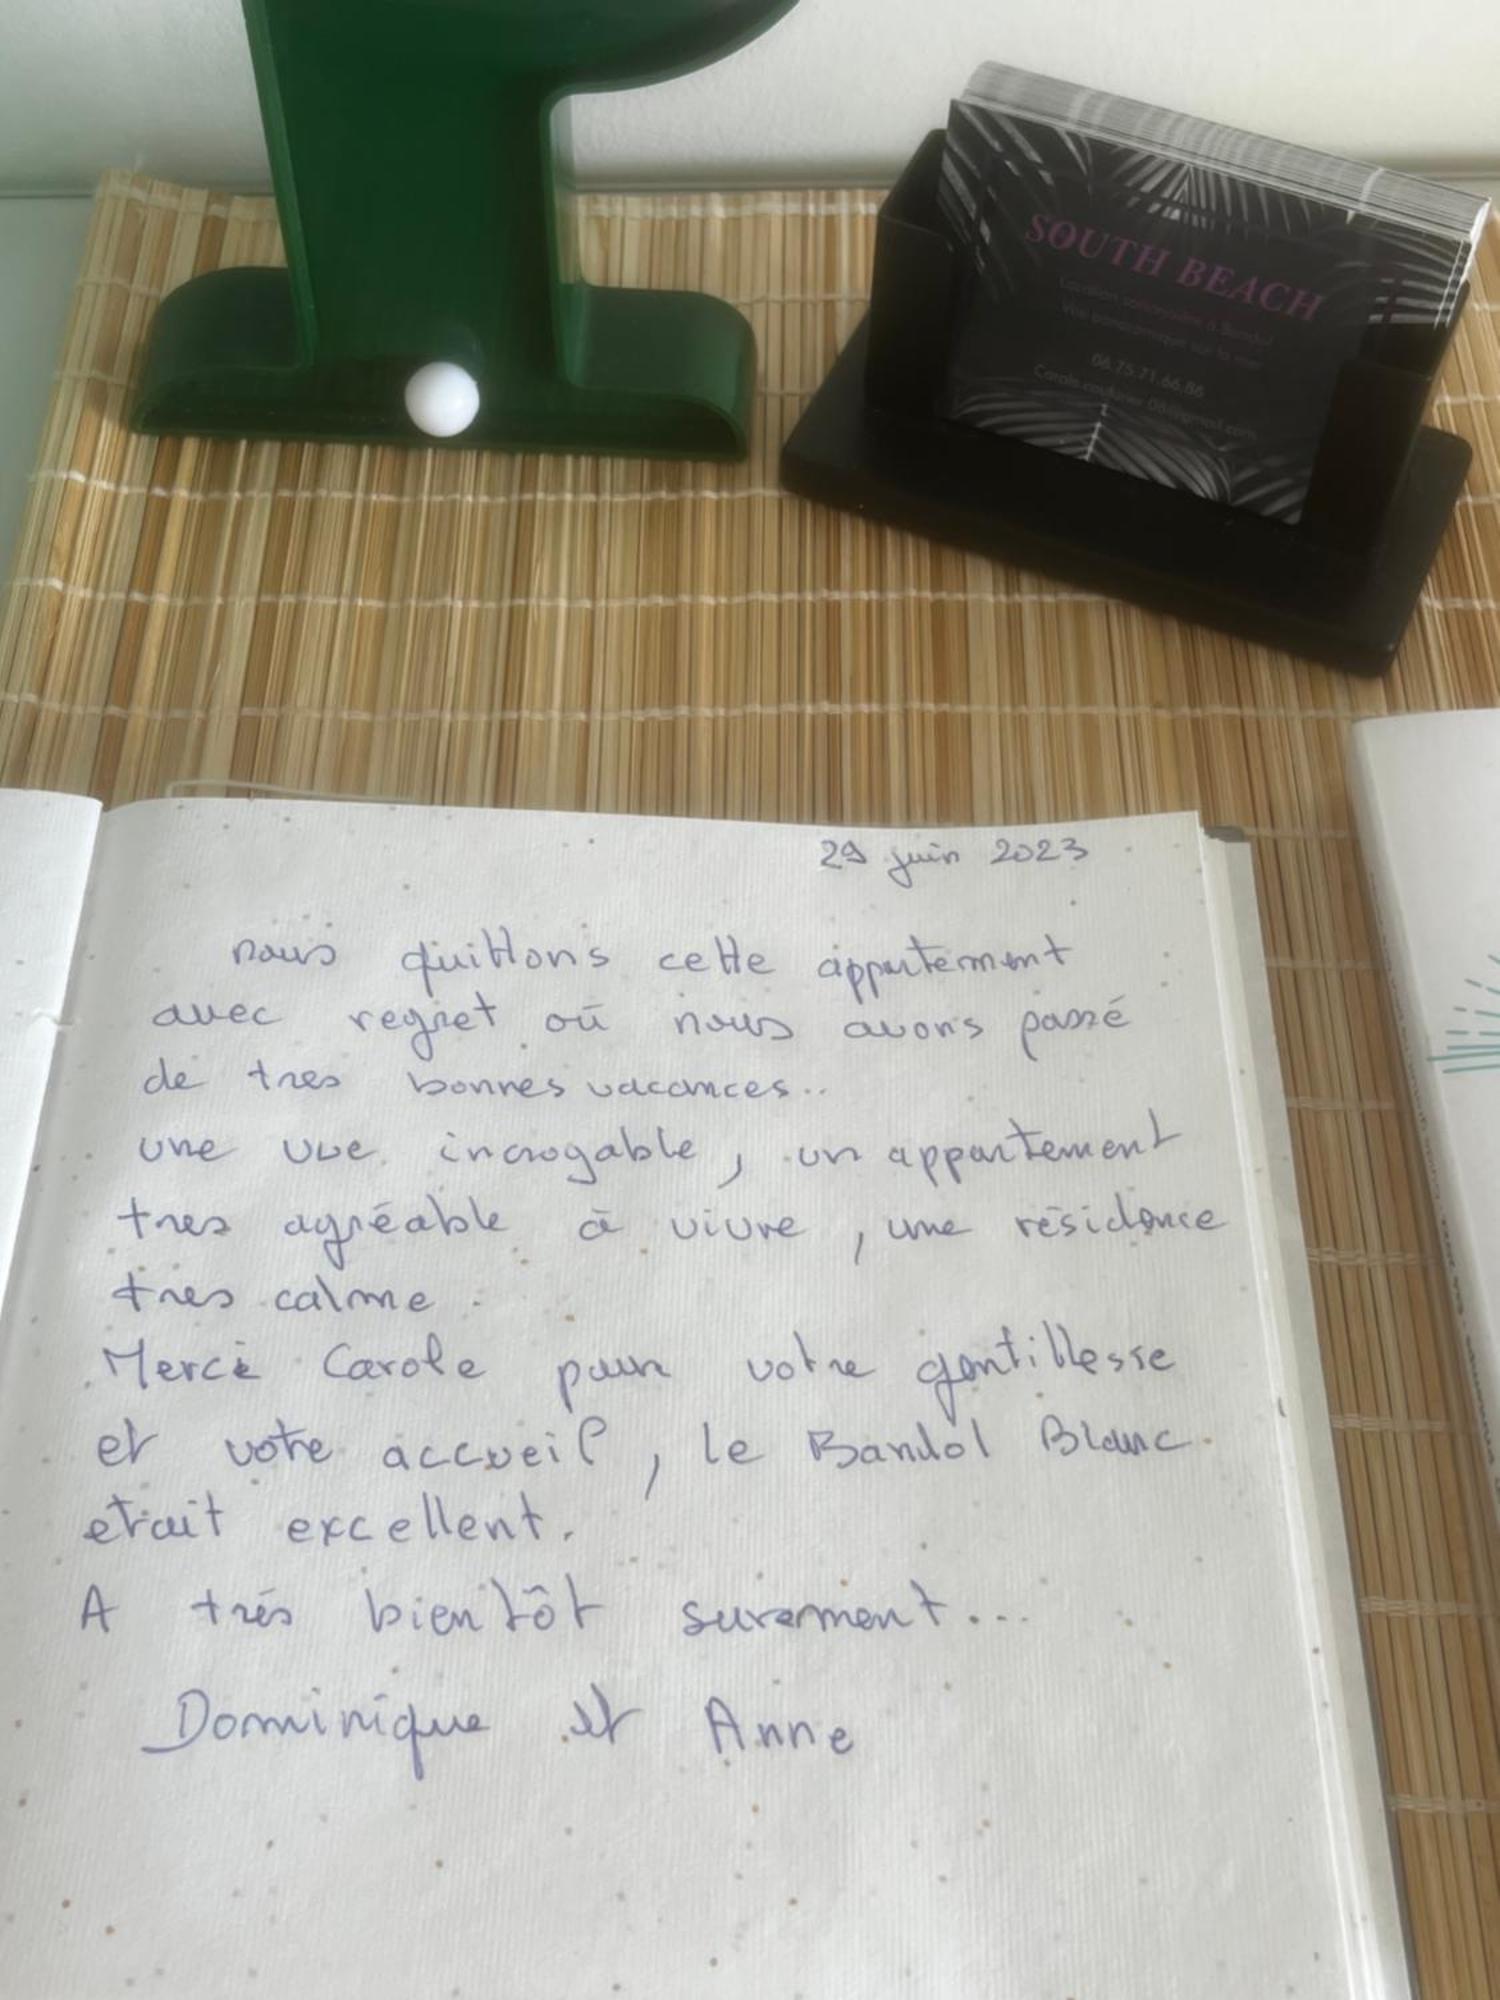 SOUTH BEACH
Location saisonnière à Bandol
Vue panoramique sur la mer
06.75.71.66.86
29 juin 2023
nous quittons cette appartement
avec regret où nous avons passé
de tres bonnes vacances..
une vue incroyable, un appartement
tres agréable à vivre, une résidence
tres calme.
Merci Carole pour votre gentillesse
et votre accueil, le Bandol Blanc
etait excellent.
A très bientôt surement...
Dominique et Anne